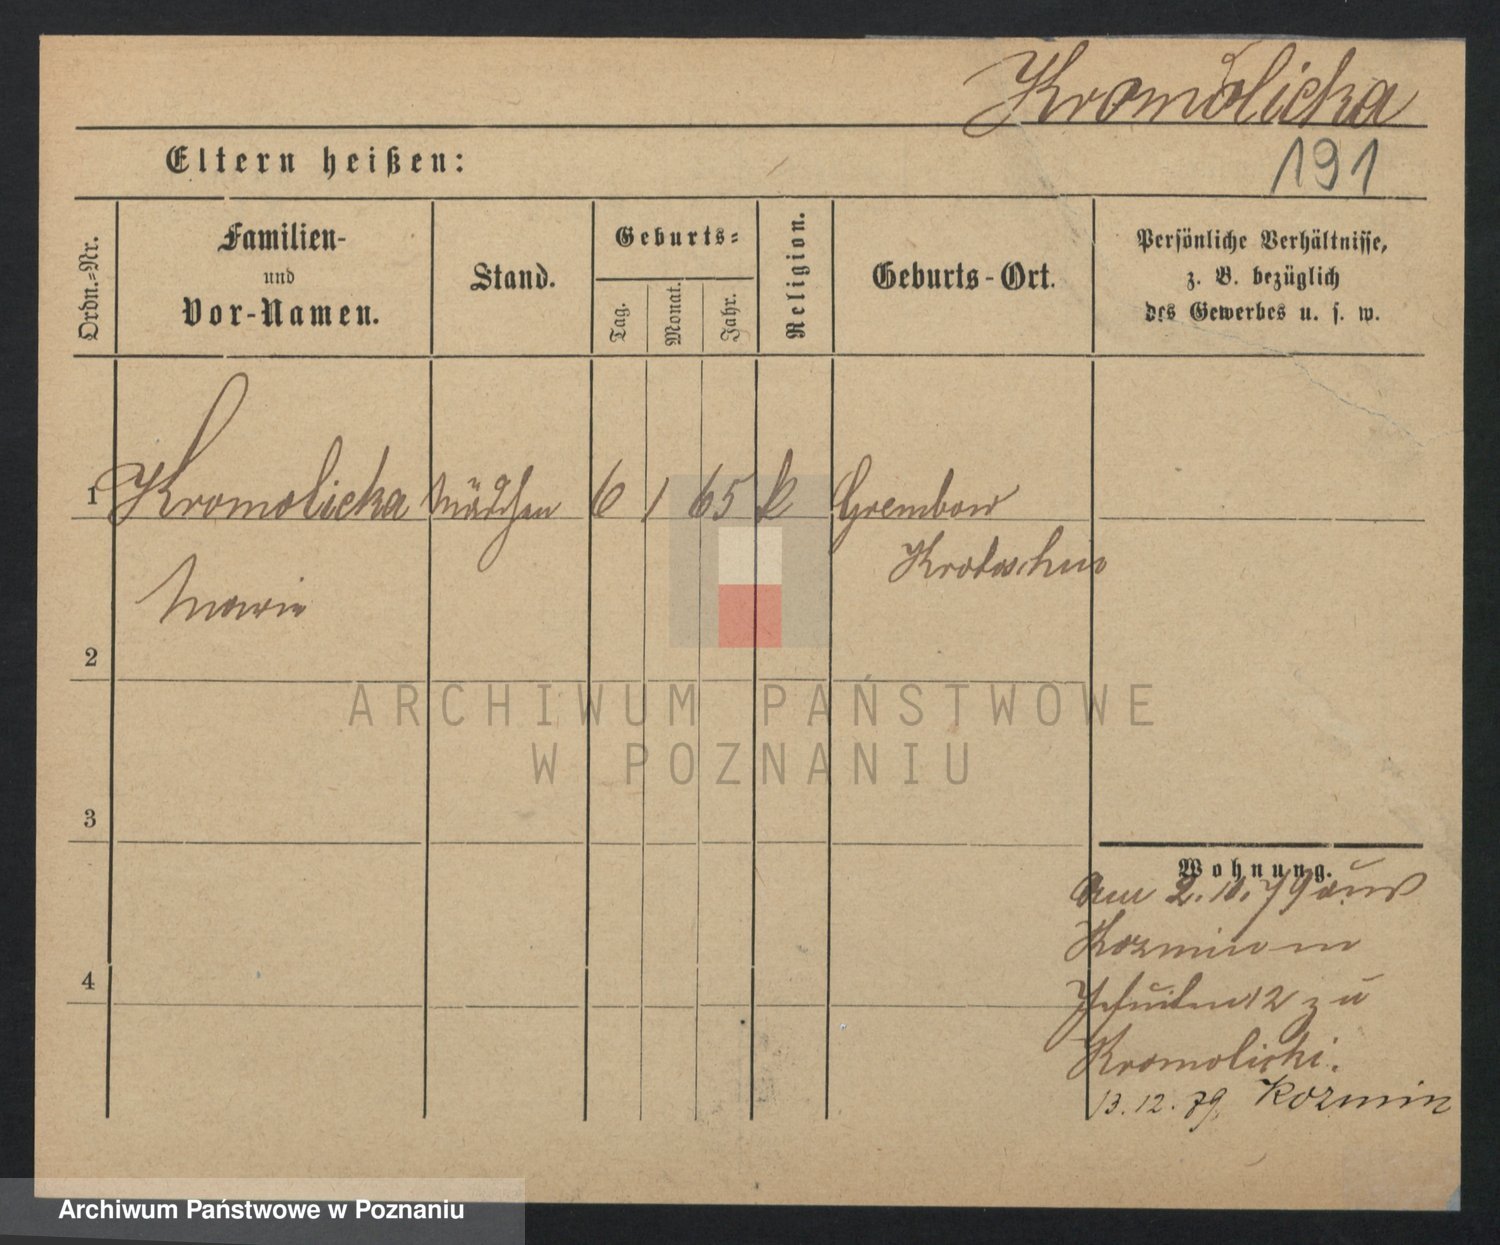 Kromolicka
191
Eltern heißen:
Ordn.=Nr.
Familien-
und
Vor-Namen.
Stand.
Geburts=
Tag.
Monat.
Jahr.
Religion.
Geburts-Ort.
Persönliche Verhältnisse,
z. B. bezüglich
des Gewerbes u. s. w.
1 Kromolicka Mädchen 6 1 65 k Grembow
Krotoschin
Marie
2
3
4
Wohnung.
Am 2.10.79 aus
Kozmin in
12 zu
Kromolicki.
13.12.79. Kozmin
ARCHIWUM PAŃSTWOWE
W POZNANIU
Archiwum Państwowe w Poznaniu